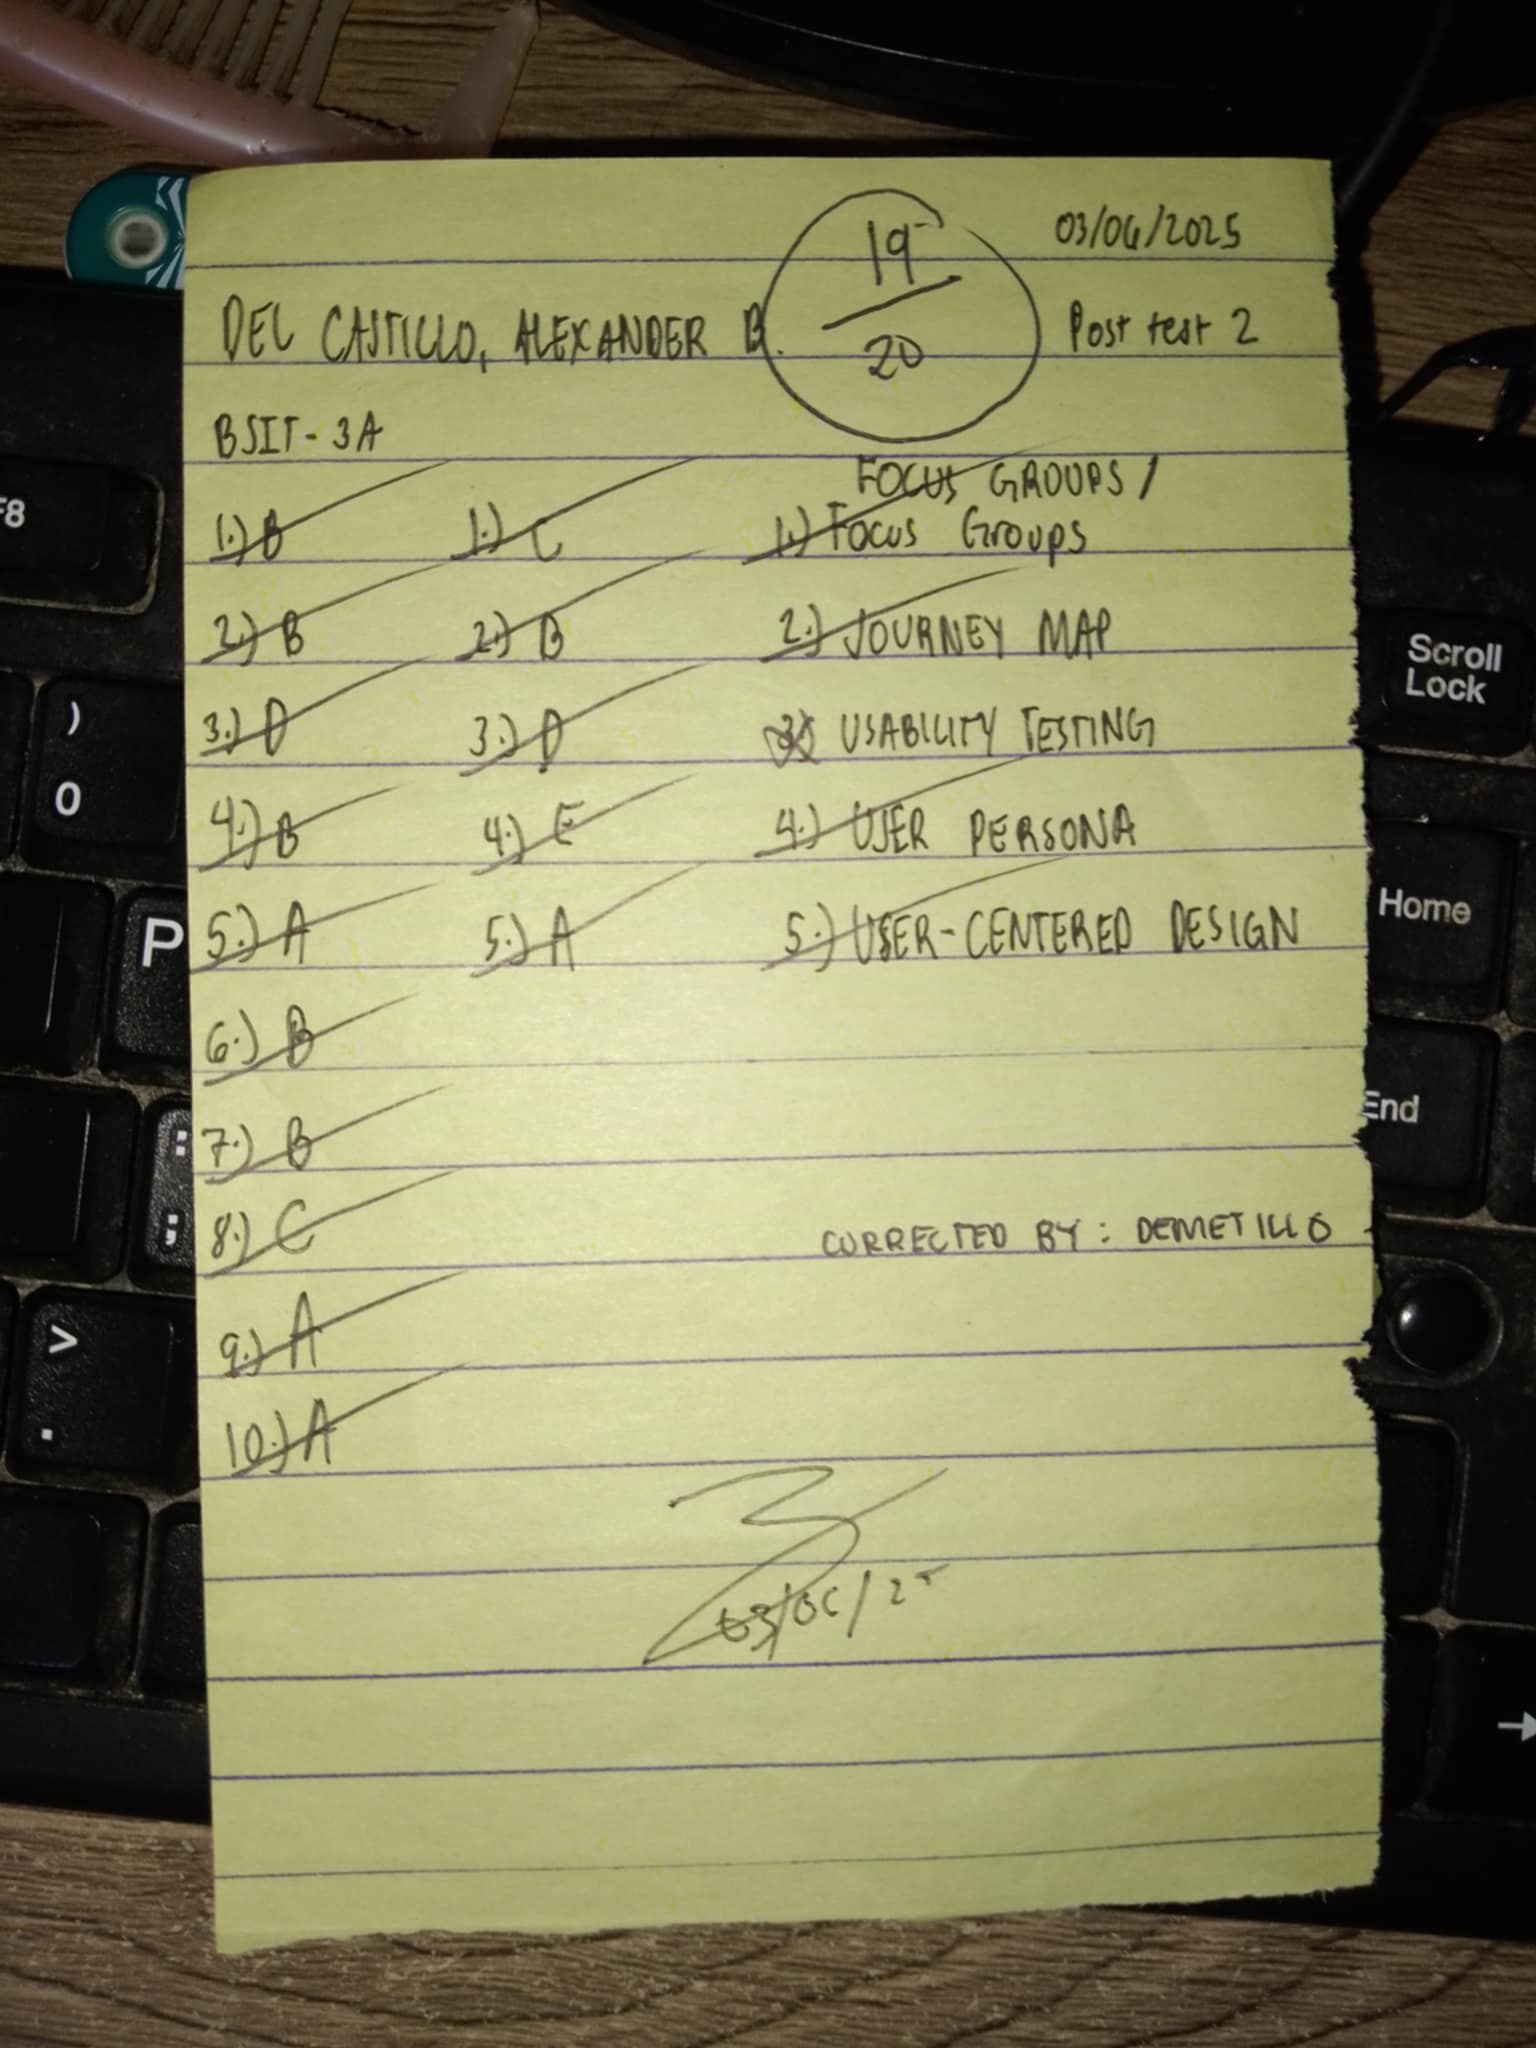 19
20
03/06/2025
DEL CASTILLO, ALEXANDER B.
Post test 2
BSIT - 3A
1.) B
2.) B
3.) D
4.) B
5.) A
6.) B
7.) B
8.) C
9.) A
10.) A
1.) C
2.) B
3.) D
4.) E
5.) A
FOCUS GROUPS /
1.) Focus Groups
2.) JOURNEY MAP
3.) USABILITY TESTING
4.) USER PERSONA
5.) USER-CENTERED DESIGN
CORRECTED BY: DEMETILLO
03/06/25
F8
)
0
P
:
;
>
.
Scroll
Lock
Home
End
→